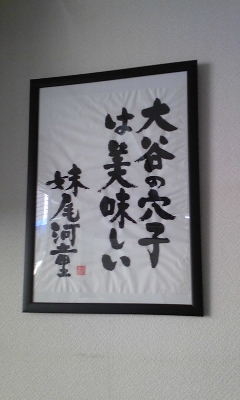 大谷の穴子
は美味しい
妹尾河童